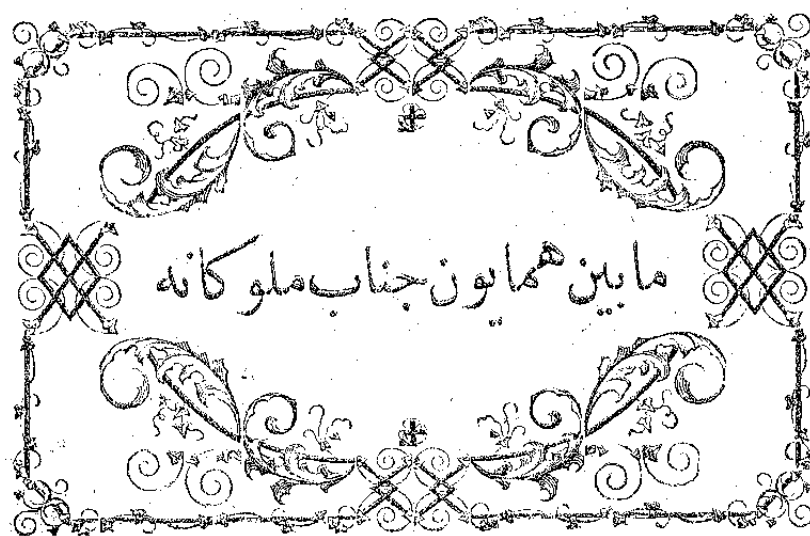 مابین همایون جناب ملوکانه